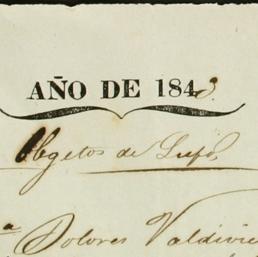 AÑO DE 1843.
Obgetos de Lujo
a Dolores Valdivie